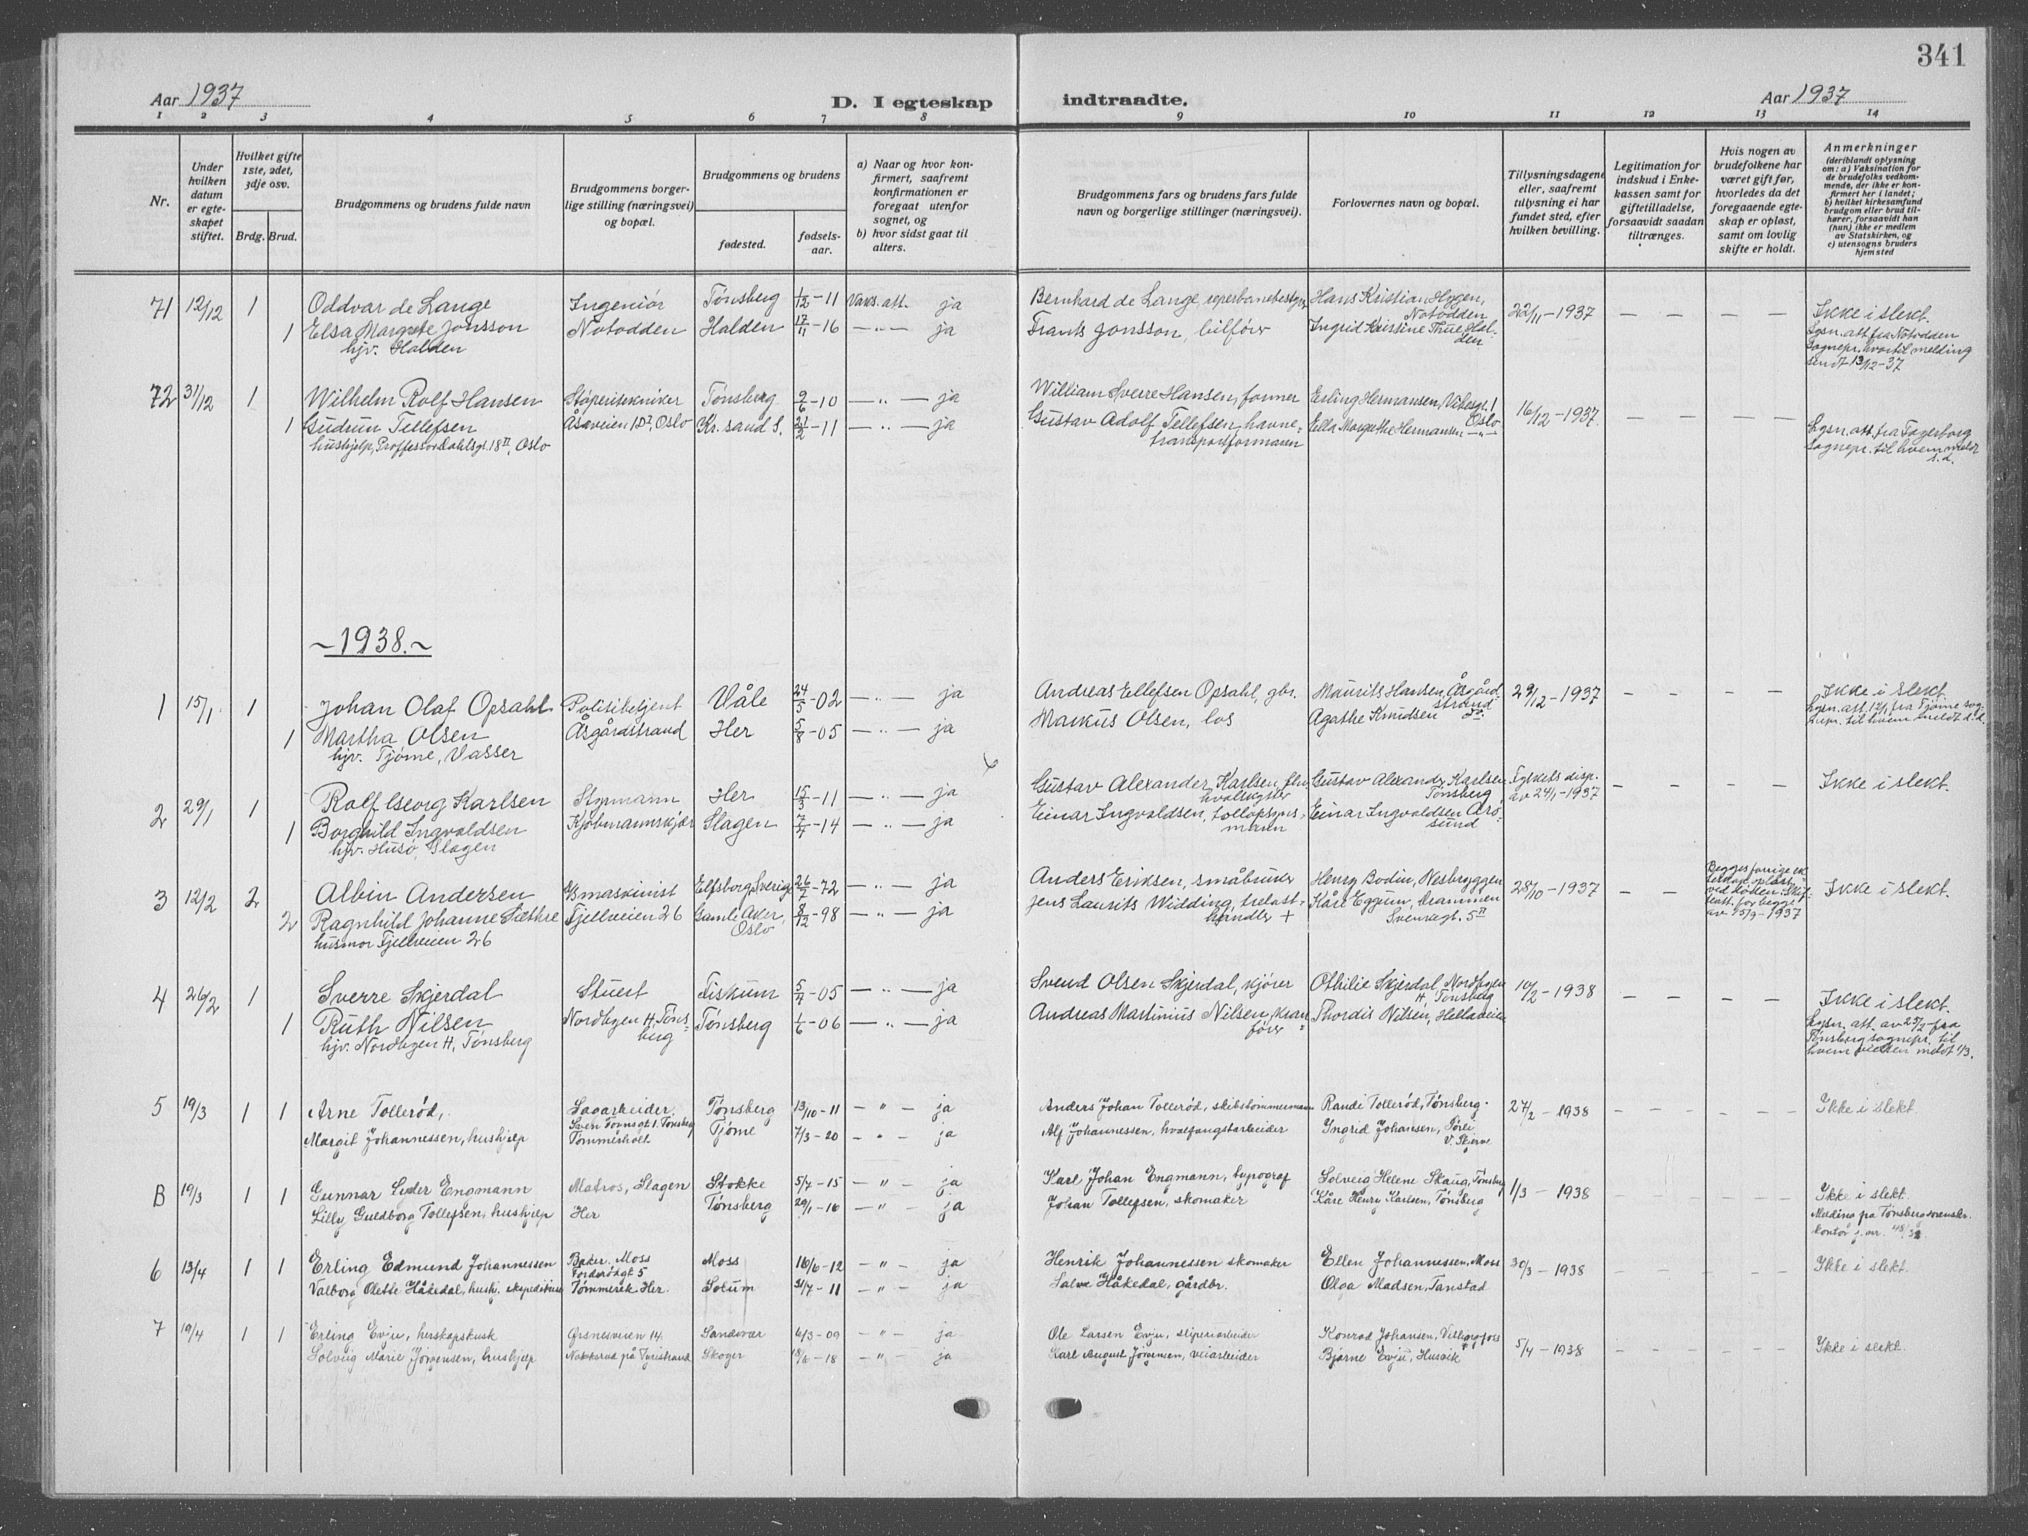 341
Aar 1937
D. I egteskap
indtraadte.
Aar 1937
1 2 3 4 5 6 7 8 9 10 11 12 13 14
Nr.
Under hvilken datum er egteskapet stiftet.
Hvilket gifte 1ste, 2det, 3dje osv.
Brdg. Brud.
Brudgommens og brudens fulde navn
Brudgommens borgerlige stilling (næringsvei) og bopæl.
Brudgommens og brudens
fødested.
fødselsaar.
a) Naar og hvor konfirmert, saafremt konfirmationen er foregaat utenfor sognet, og
b) hvor sidst gaat til alters.
Brudgommens fars og brudens fars fulde navn og borgerlige stillinger (næringsvei).
Forlovernes navn og bopæl.
Tillysningsdagene eller, saafremt tillysning ei har fundet sted, efter hvilken bevilling.
Legitimation for indskud i Enkekassen samt for giftetilladelse, forsaavidt saadan tiltrænges.
Hvis nogen av brudefolkene har været gift før, hvorledes da det foregaaende egteskap er opløst, samt om lovlig skifte er holdt.
Anmerkninger
(deriblandt oplysning om: a) Vaksination for de brudefolks vedkommende, der ikke er konfirmert her i landet;
b) hvilket kirkesamfund brudgom eller brud tilhører, forsaavidt han (hun) ikke er medlem av Statskirken, og
c) utensogns bruders hjemsted
71 12/12 1 Oddvar de Lange Ingeniør Tønsberg 1/12-11 Vaks. att. ja Bernhard de Lange, reperbanebestyrer Hans Kristian Hygen, Notodden 22/11-1937 — — — — Ikke i slekt.
1 Elsa Margrete Jonsson Notodden Halden 17/11-16 — " — ja Frants Jonsson, bilfører Ingrid Kristine Thue Halden Lysn. att. fra Notodden
hjv. Halden Sognepr. hvortil melding sendt 13/12-37
72 31/12 1 Wilhelm Rolf Hansen Støperitekniker Tønsberg 9/6-10 — " — ja William Sverre Hansen, former Erling Hermansen, Vibesgt. 1 Oslo 16/12-1937. — — — —
1 Gudrun Tellefsen Åsaveien 1 D I, Oslo Kr. sand S. 21/2-11 — " — ja Gustav Adolf Tellefsen, havnetransportformann Ella Margrethe Hermansen — " — Lysn. att. fra Fagerborg
hushjelp, Proffessor Dahlsgt. 18 II, Oslo Sognepr. til hvem meldt s.d.
~1938.~
1 15/1. 1 Johan Olaf Opsahl Politibetjent Våle 24/5-02 — " — ja Andreas Ellefsen Opsahl, gbr. Maurits Hansen, Åsgårdstrand 29/12-1937 - - - - Ikke i slekt.
1 Martha Olsen Åsgårdstrand Her 5/8-05 — " — ja Markus Olsen, los Agathe Knudsen do. Lysn. att. 12/1 fra Tjøme sognepr. til hvem meldt s.d.
hjv. Tjøme, Vasser
2 29/1 1 Rolf Georg Karlsen Styrmann Her 15/3-11 — " — ja Gustav Alexander Karlsen, hvalskytter Gustav Alexander Karlsen Tønsberg, Fylkets disp. av 24/1-1937 - - - - Ikke i slekt.
1 Borghild Ingvaldsen Kjøbmannskjær Slagen 7/4-14 — " — ja Einar Ingvaldsen, tolloppsynsmann Einar Ingvaldsen Arøsund
hjv. Husø, Slagen
3 12/2 2 Albin Andersen maskinist Elfsborg, Sverige 26/7-72 — " — ja Anders Eriksen, småbruker Henry Bodin, Nesbryggen 28/10-1937 - - Begges forrige ekteskap opløst ved døden. Skif. att. for begge av 15/9-1937 Ikke i slekt.
2 Ragnhild Johanne Sæthre Fjellveien 26 Gamle Aker, Oslo 8/12-98 — " — ja Jens Laurits Widding, trelasthandler + Kåre Eggum, Drammen Svensgt. 5 II
husmor Fjellveien 26
4 26/2 1 Sverre Skjerdal Stuert Fiskum 5/4-05 — " — ja Svend Olsen Skjerdal, kjører Othilie Skjerdal, Nordbyen H, Tønsberg 10/2-1938 - - - - Ikke i slekt.
1 Ruth Nilsen Nordbyen H, Tønsberg Tønsberg 1/6-06 — " — ja Andreas Martinius Nilsen, kranfører Thordis Nilsen, Hellaveien Lysn. att. av 25/2 fra Tønsberg sognepr. til hvem vielsen meldt 1/3.
hjv. Nordbyen H, Tønsberg
5 19/3 1 1 Arne Tollerød, Sagarbeider. Tønsberg 13/10-11 - " - ja Anders Johan Tollerød, skibstømmermann Randi Tollerød, Tønsberg. 27/2-1938 - - - - Ikke i slekt.
Sven Foynsgt 1. Tønsberg
Margit Johannessen, hushjelp Tømmerholt Tjøme 7/3-20 - " - ja Alf Johannessen, hvalfangstarbeider Ingrid Johansen,
B 19/3 1 1 Gunnar Lyder Engmann Matros, Slagen Stokke 5/7-15 - " - ja Karl Johan Engmann, typograf Solveig Helene Skaug, Tønsberg 1/3-1938 - - - - Ikke i slekt.
Lilly Guldborg Tollefsen, hushjelp Her Tønsberg 29/1-16 - " - ja Johan Tollefsen, skomaker Kåre Henry Karlsen, Tønsberg Melding på Tønsberg sorenskr. kontor j. nr. 48/38
6 13/4 1 1 Erling Edmund Johannessen Baker. Moss Moss 16/6-12 - " - ja Henrik Johannessen skomaker Ellen Johannessen, Moss 30/3-1938 - - - - Ikke i slekt.
Valborg Olette Håkedal, hush. ekspeditrise Tømmerek Her. Solum 31/7-11 - " - ja Salve Håkedal, gårdbr. Olga Madsen, Tanstad
7 19/4 1 1 Erling Evju, herskapskusk Ørsnesveien 14. Sandsvær 6/3-09 - " - ja Ole Larsen Evju, sliperiarbeider Konrad Johansen, Vittingfoss 5/4-1938 - - - - Ikke i slekt.
Solveig Marie Jørgensen, hushjelp Skoger 18/6-18 - " - ja Karl August Jørgensen, veiarbeider Bjarne Evju, Husvik